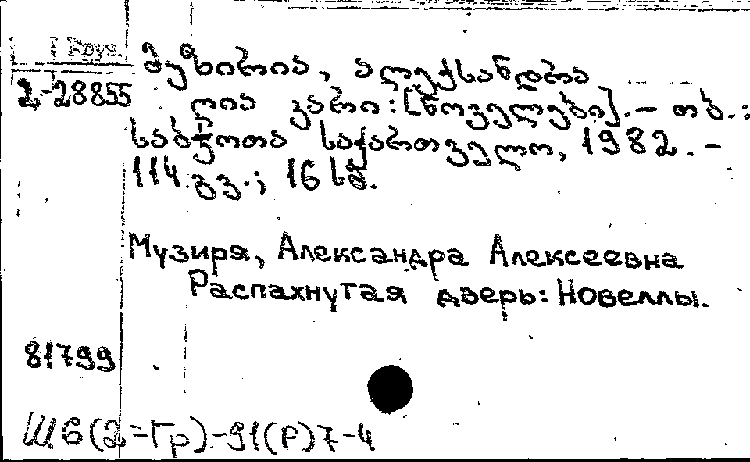 მუზირია, ალექსანდრა
2-28855
ღია კარი: [ნოველები]. – თბ.:
საბჭოთა საქართველო, 1982. –
114 გვ.; 16 სმ.
Музиря, Александра Алексеевна
Распахнутая дверь: Новеллы.
81799
Ш6(2=Гр)-91(Р)7-4